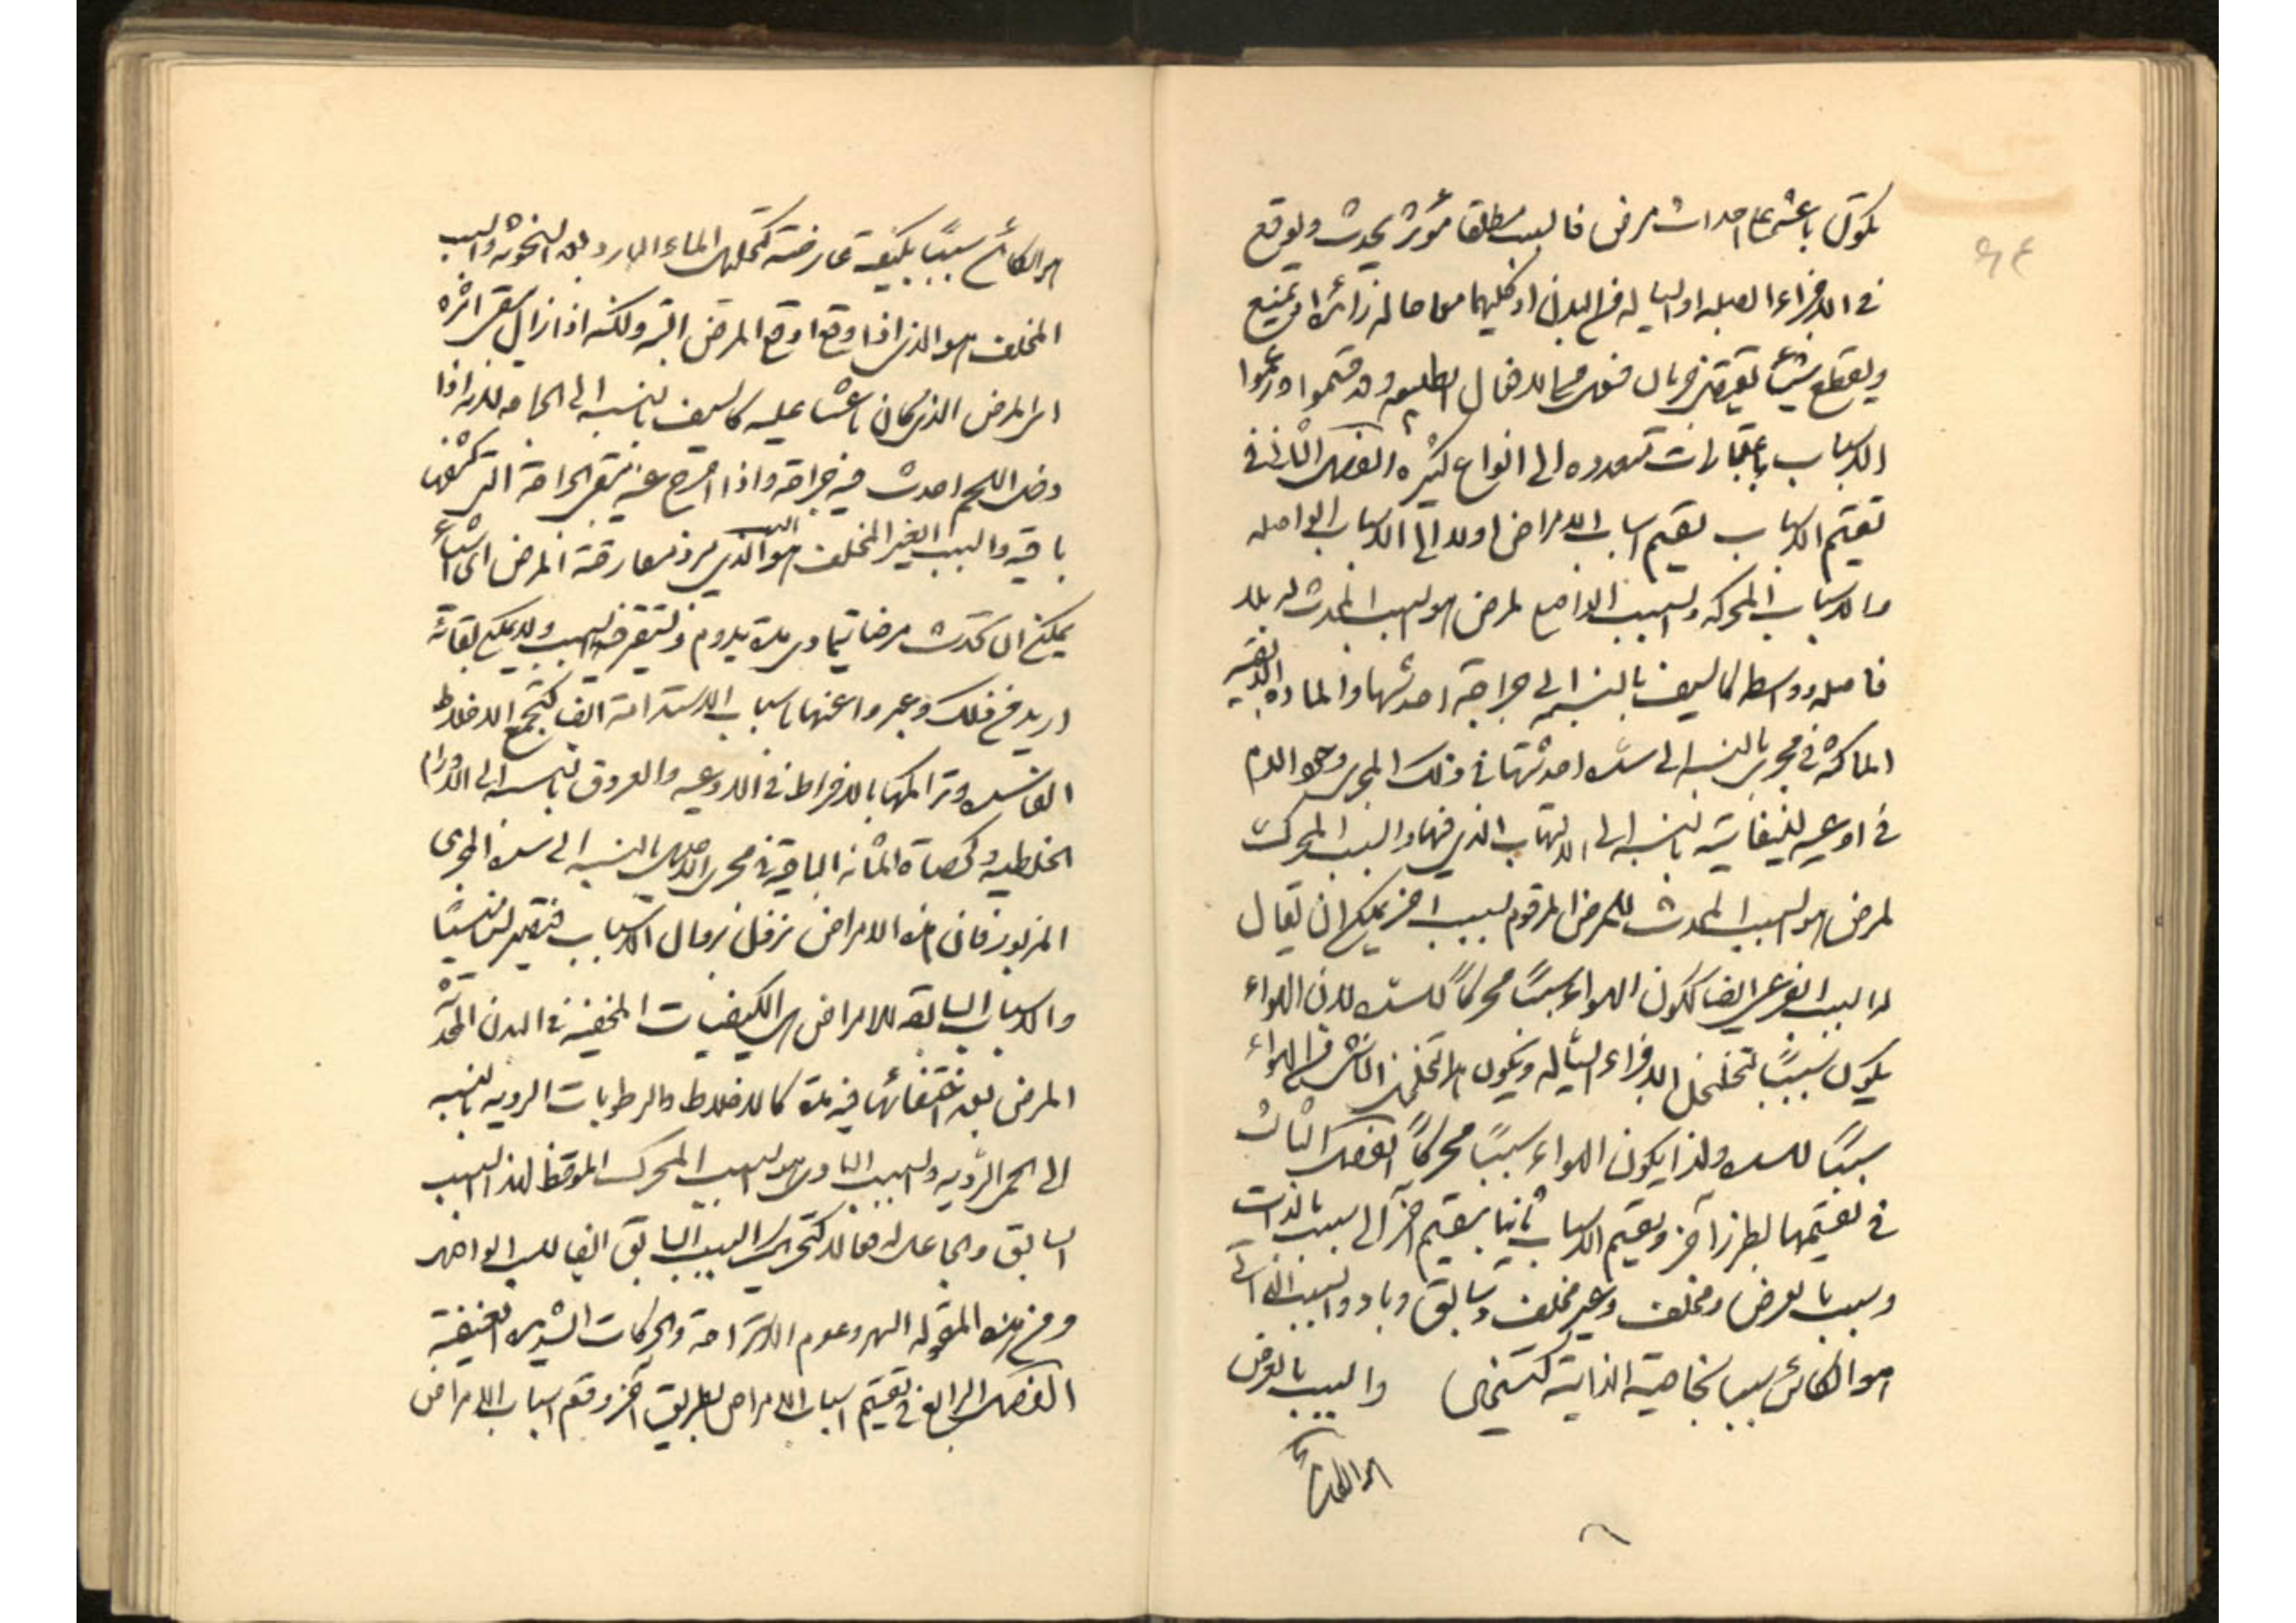 يكون باعثا على احداث مرض فالسبب مطلقا مؤثر يحدث ويوقع
في الاجزاء الصلبه او السياله في البدن او كليهما معا حاله زائدة او يمنع
ويقطع شيئا
الاسباب باعتبارات متعدده الى انواع كثيره الفصل الثاني في
تقسيم الاسباب تقسم اسباب الامراض اولا الى الاسباب الواصله
والاسباب المحركه والسبب الواضع لمرض هو السبب المحدث له بلا
فاصله وواسطه كالسيف بالنسبه الى جراحة احدثها والماده
الماكثة في مجرى بالنسبه الى سده احدثتها في ذلك المجرى وهو الدم
في اوعيه لينفاتية بالنسبه الى الالتهاب الذي فيها والسبب المحرك
لمرض هو السبب المحدث للمرض المرقوم بسبب اخر يمكن ان يقال
له السبب الفرعي ايضا ككون الهواء سببا محركا للسده لان الهواء
يكون سببا لتخلخل الاجزاء السياله ويكون هذا التخلخل الناشئ من الهواء
سببا للسده ولذا يكون الهواء سببا محركا الفصل الثالث
في تقسيمها بطرز آخر وتقسم الاسباب ثانيا بتقسيم آخر الى سبب بالذات
وسبب بالعرض ومخلف وغير مخلف وسابق وباد والسبب الذاتى
هو الكائن سببا بخاصيته الذاتية كتسخين والسبب بالعرض
هو الكائن
هو الكائن سببا بكيفية عارضة الماء البارد والسبب
المخلف هو الذي اذا وقع اوقع المرض البته ولكنه اذا زال يبقى اثره
اى المرض الذي كان باعثا عليه كالسيف بالنسبه الى الجراحه لانه اذا
دخل اللحم احدث فيه جراحة واذا اخرج عنه تبقى الجراحة التي
باقيه والسبب الغير المخلف هو الذي معارضة المرض اى اشياء
يمكن ان تحدث مرضا مدة يدوم السبب ولا يمكن بقائه
ازيد من ذلك وعبروا عنها باسباب الاستدامة ايضا كتجمع الاخلاط
الفاسده وتراكمها بالافراط في الاوعيه والعروق بالنسبه الى الاورام
الخلطيه وكحصاة المثانه الباقية في مجرى بالنسبه الى سده المجرى
المزبور فان هذه الامراض تزول بزوال الاسباب
والاسباب السابقه للامراض هي الكيفيات المخفية في البدن
المرض بعد اختفائها فيه مدة كالاخلاط والرطوبات الرديه بالنسبه
الى الحمى الرديه والسبب البادى هو السبب المحرك الموقظ لهذا السبب
السابق والجاعل له فعالا كتحريك السبب السابق ايضا للسبب الواصل
ومن هذه المقوله السهر وعدم الاستراحة والحركات الشديده العنيفة
الفصل الرابع في تقسيم اسباب الامراض بطريق آخر وتقسم اسباب الامراض